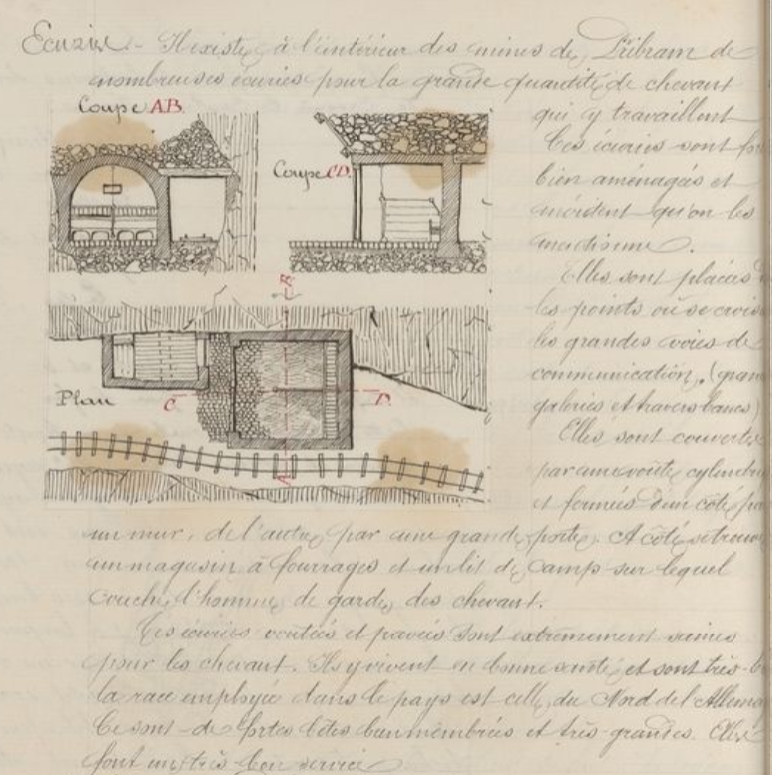 Ecuries. - Il existe, à l'intérieur des mines de Přibram de
nombreuses écuries pour la grande quantité de chevaux
Coupe A.B.
qui y travaillent
Coupe C.D.
Ces écuries sont
bien aménagées et
méritent qu'on les
mentionne.
Elles sont placées
les points où se
les grandes voies de
communication, (
galeries et travers bancs)
Elles sont couvertes
par une voûte
et fermées d'un côté
B
Plan
C
D.
A
un mur, de l'autre par une grande porte. A côté se
un magasin à fourrages et un lit de camp sur lequel
couche l'homme de garde des chevaux.
Ces écuries voutées et pavées sont extrêmement saines
pour les chevaux. Ils y vivent en bonne santé, et sont très-
la race employée dans le pays est celle du Nord de l'
Ce sont de fortes bêtes bien membrées et très-grandes. Elles
font un très-bon service